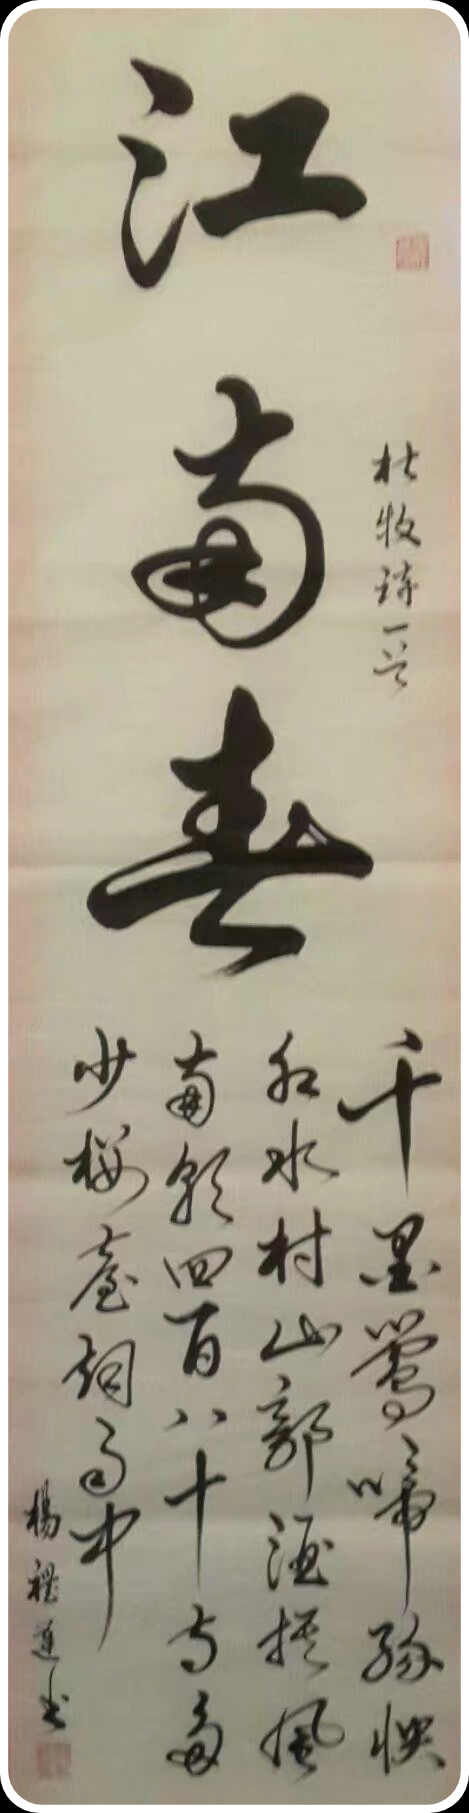 江南春
杜牧詩一首
千里鶯啼綠映
紅水村山郭酒旗風
南朝四百八十寺多
少楼臺烟雨中
楊書